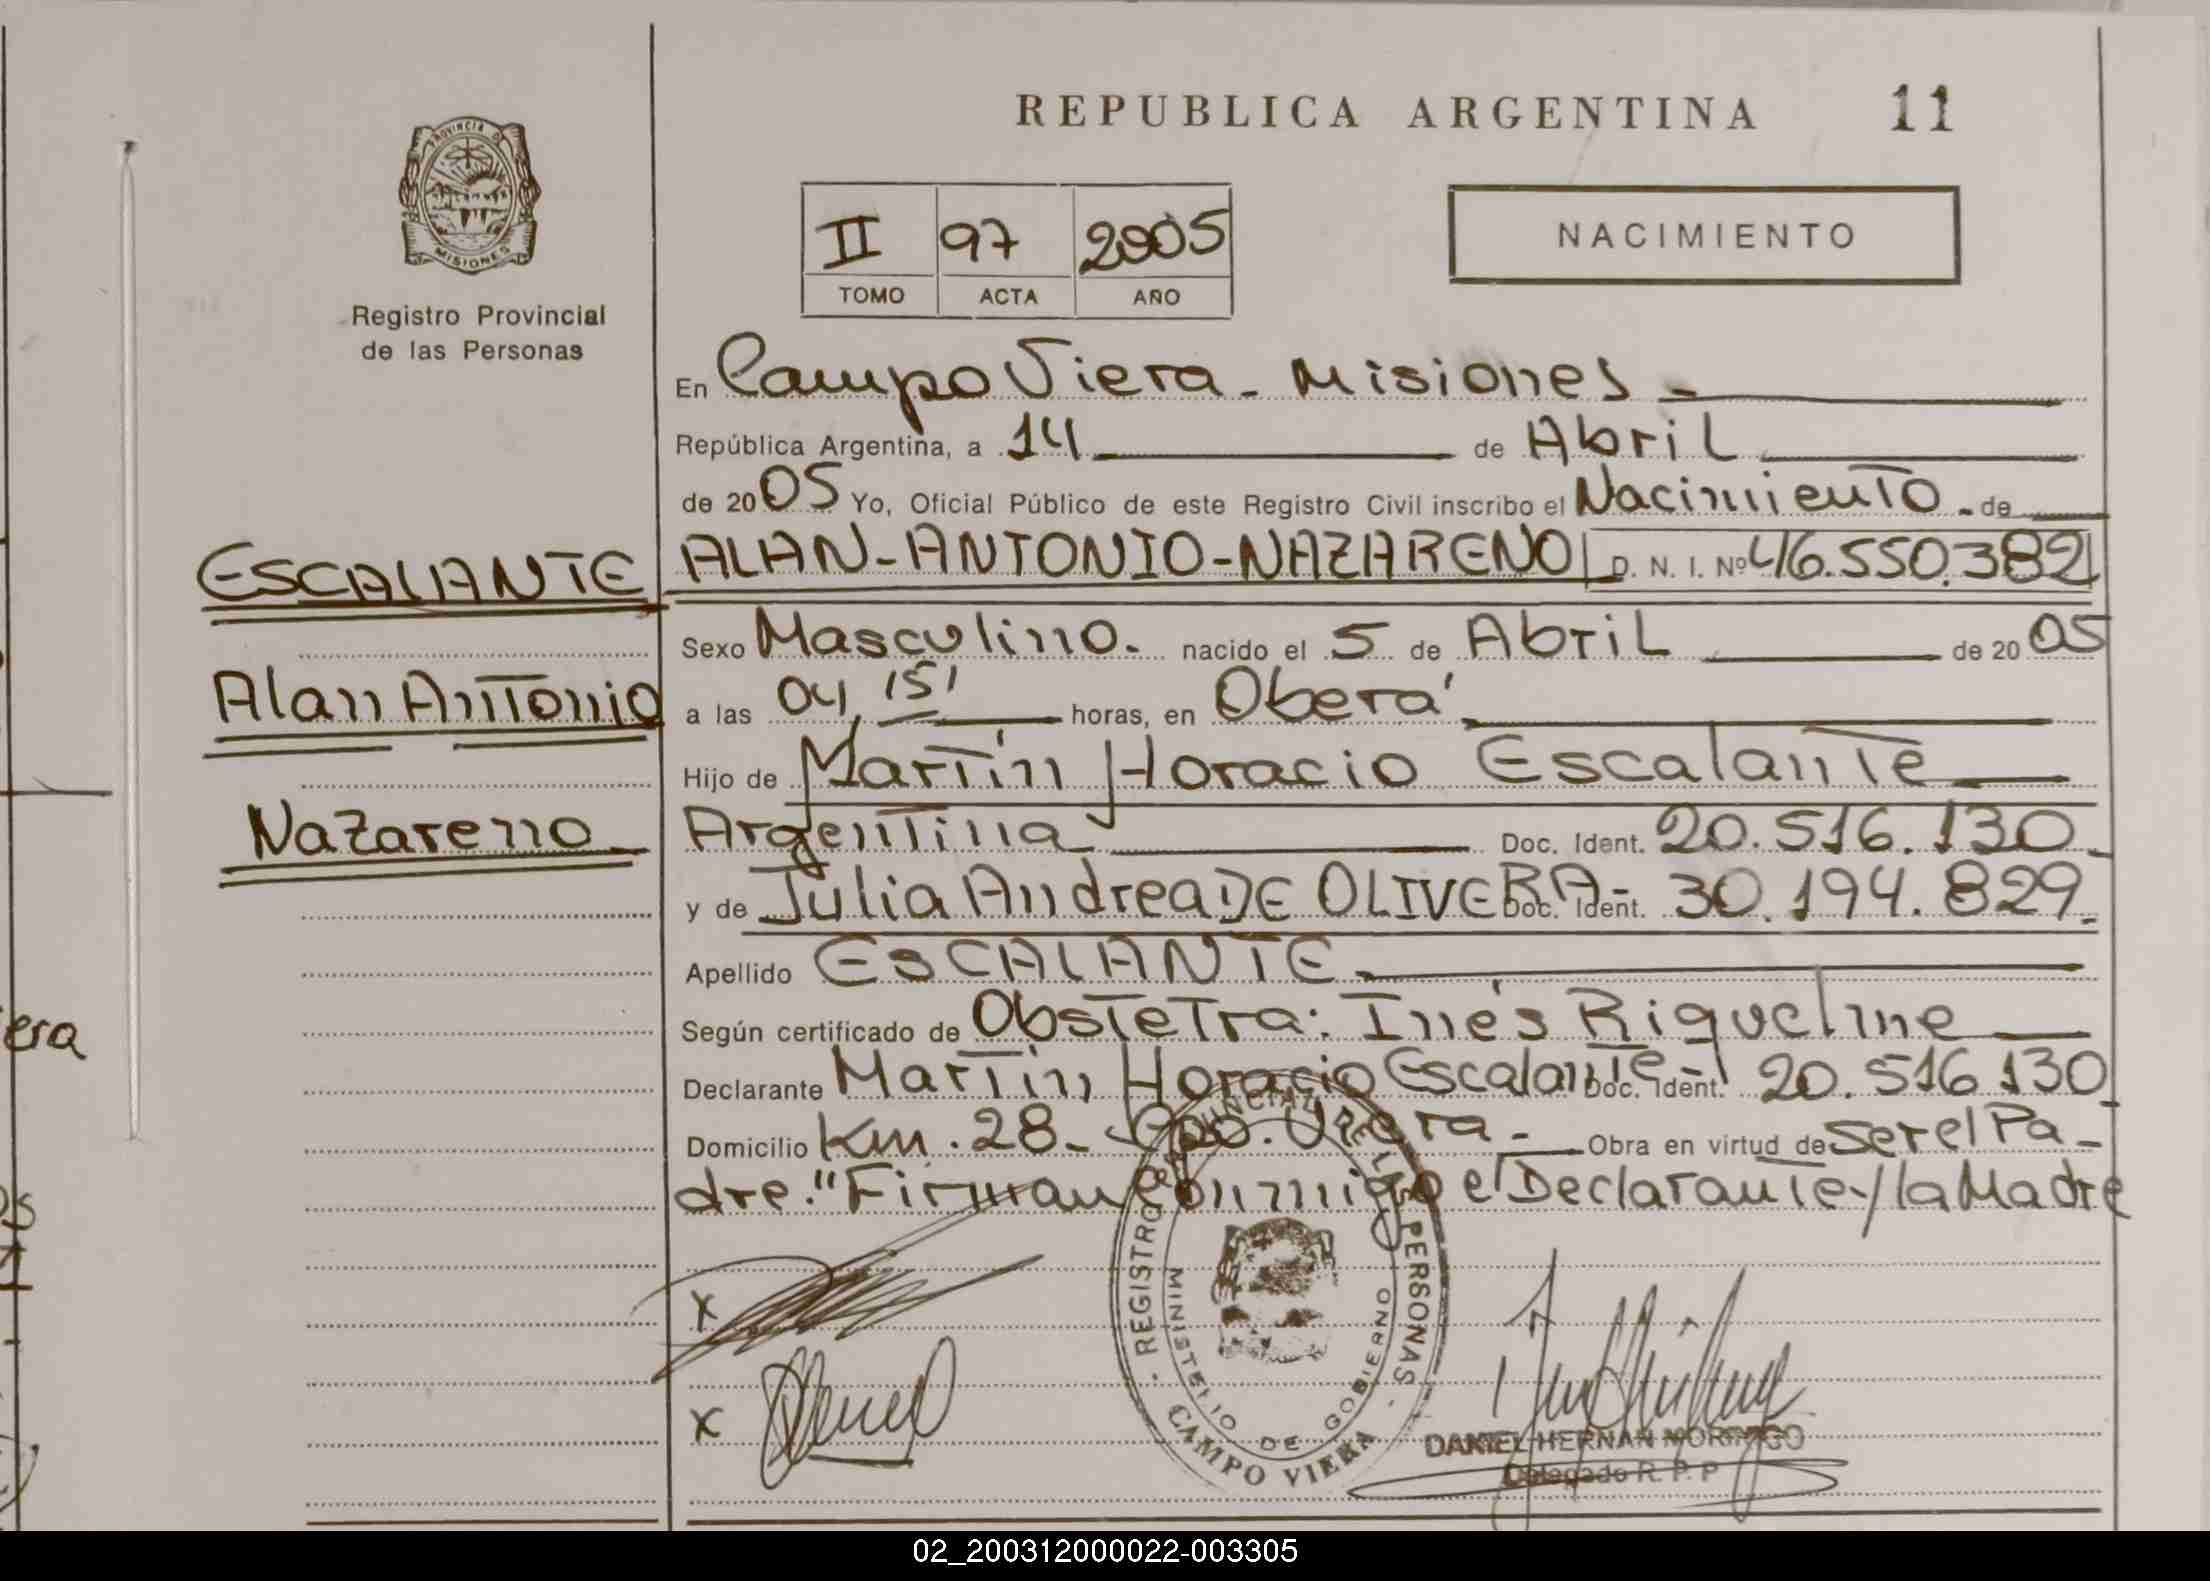 REPUBLICA ARGENTINA 11
PROVINCIA DE
MISIONES
Registro Provincial
de las Personas
II 97 2005
TOMO ACTA AÑO
NACIMIENTO
En Campo Viera - Misiones -
República Argentina, a 14 de Abril
de 2005 Yo, Oficial Público de este Registro Civil inscribo el Nacimiento - de
ESCALANTE
Alan Antonio
Nazareno
ALAN-ANTONIO-NAZARENO D. N. I. Nº 46.550.382
Sexo Masculino. nacido el 5 de Abril de 2005
a las 04,15' horas, en Oberá
Hijo de Martín Horacio Escalante
Argentina Doc. Ident. 20.516.130
y de Julia Andrea DE OLIVERA - Doc. Ident. 30.194.829
Apellido ESCALANTE
Según certificado de Obstetra: Inés Riquelme
Declarante Martín Horacio Escalante - Doc. Ident. 20.516.130
Domicilio Km. 28 - Cpo. Viera - Obra en virtud de ser el Pa-
dre." Firman Conmigo el Declarante y la Madre
x
x
REGISTRO PROVINCIAL DE LAS PERSONAS
MINISTERIO DE GOBIERNO
CAMPO VIERA
DANIEL HERNAN MORINIGO
Delegado R. P. P
era
02_200312000022-003305